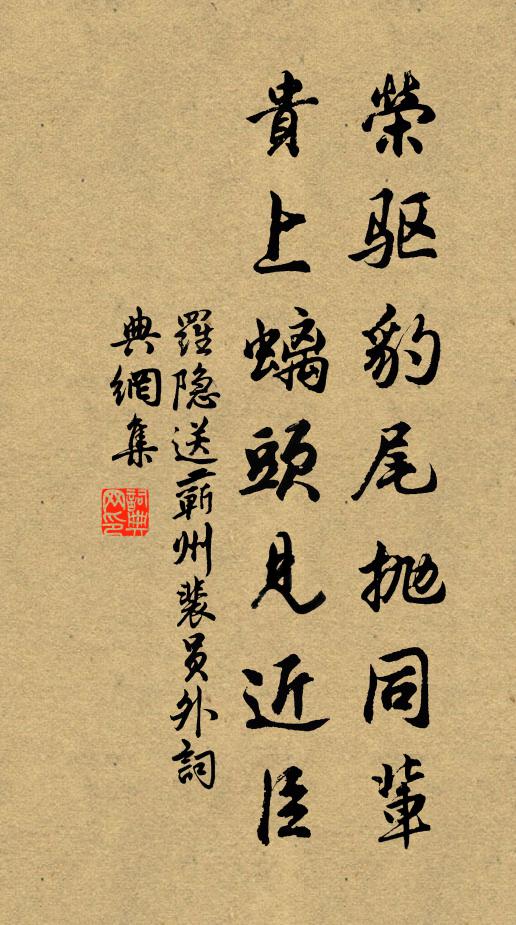 榮驱豹尾抛同輩
貴上螭頭見近臣
羅隐送蘄州裴员外詞
典網集
詞典网印